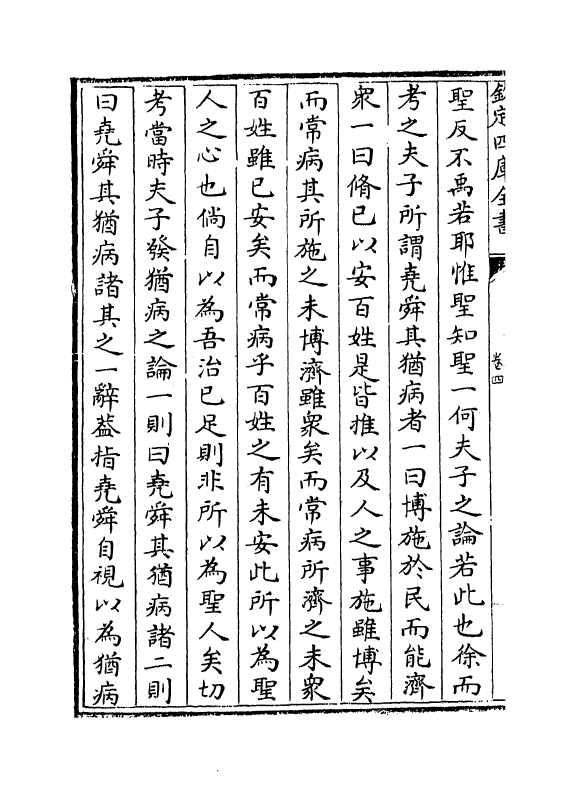 欽定四庫全書
卷四
聖反不禹若耶惟聖知聖一何夫子之論若此也徐而
考之夫子所謂堯舜其猶病者一曰博施於民而能濟
衆一曰脩已以安百姓是皆推以及人之事施雖博矣
而常病其所施之未博濟雖衆矣而常病所濟之未衆
百姓雖已安矣而常病乎百姓之有未安此所以為聖
人之心也倘自以為吾治已足則非所以為聖人矣切
考當時夫子發猶病之論一則曰堯舜其猶病諸二則
曰堯舜其猶病諸其之一辭葢指堯舜自視以為猶病